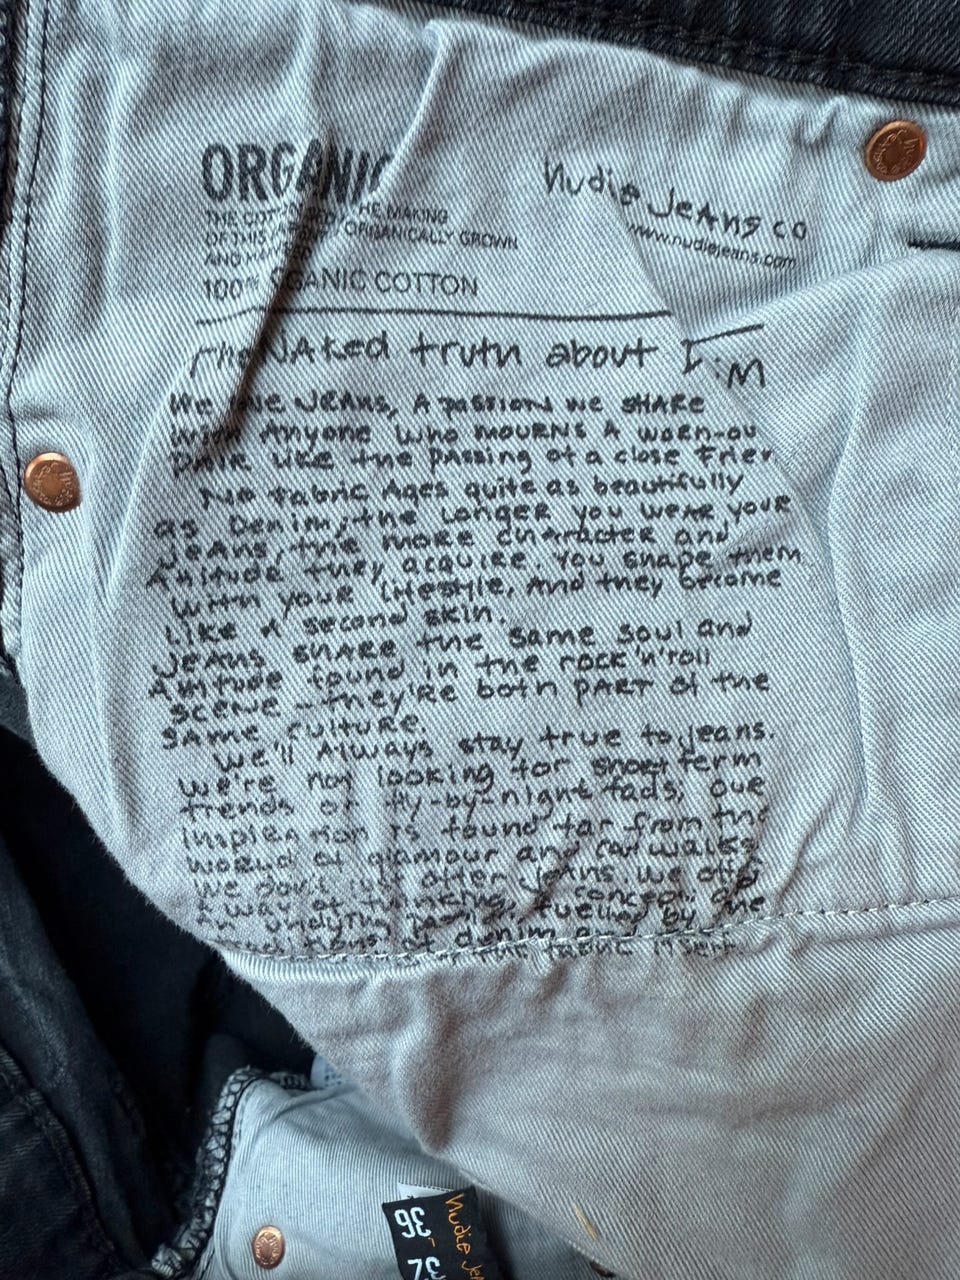 ORGANIC
THE COTTON MAKING
OF THIS ORGANICALLY GROWN
AND
100% ORGANIC COTTON
Nudie Jeans co
www.nudiejeans.com
The Naked truth about
We Jeans, A passion we share
with Anyone who mourns A worn-ou
pair like the passing of a close Frien
No fabric Ages quite as beautifully
as Denim, the longer you wear your
Jeans, the more character and
Attitude they acquire. You shape them
with your lifestyle, And they become
like A second skin.
Jeans share the same soul and
Attitude found in the rock'n'roll
scene - they're both part of the
same culture.
We'll Always stay true to jeans.
We're not looking for short term
trends or fly-by-night fads; our
inspiration is found far from the
world of glamour and catwalks
We don't just offer jeans. We offer
A way of thinking, concept, an
undying fuelled by the
traditions of denim and
the fabric itself.
Nudie Je
36
32